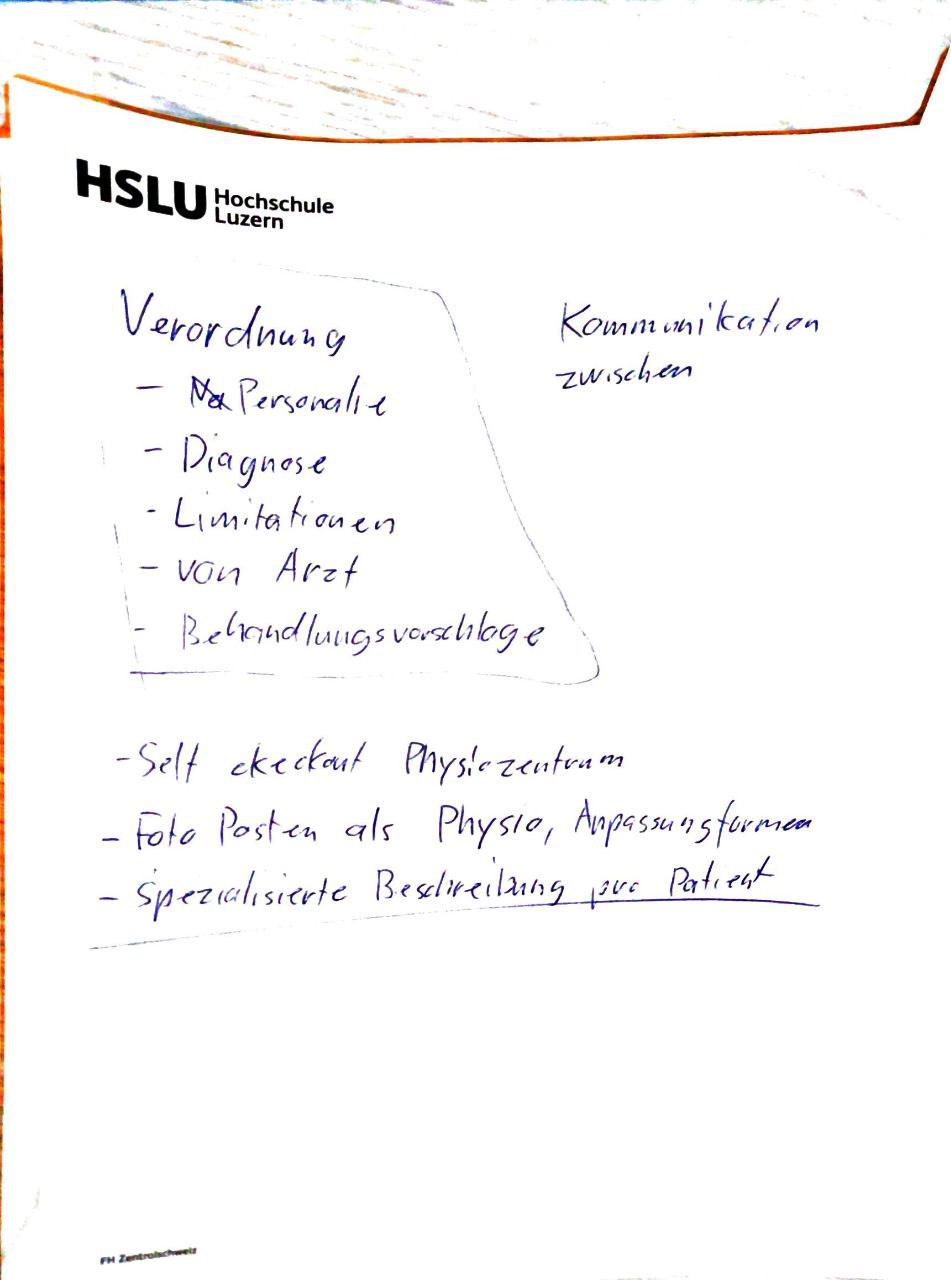 HSLU Hochschule
Luzern
Verordnung
- Personalie
- Diagnose
- Limitationen
- von Arzt
- Behandlungsvorschlage
Kommunikation
zwischen
- Self ckeckout Physiozentrum
- Foto Posten als Physio, Anpassungformen
- Spezialisierte Beschreibung pro Patient
FH Zentralschweiz